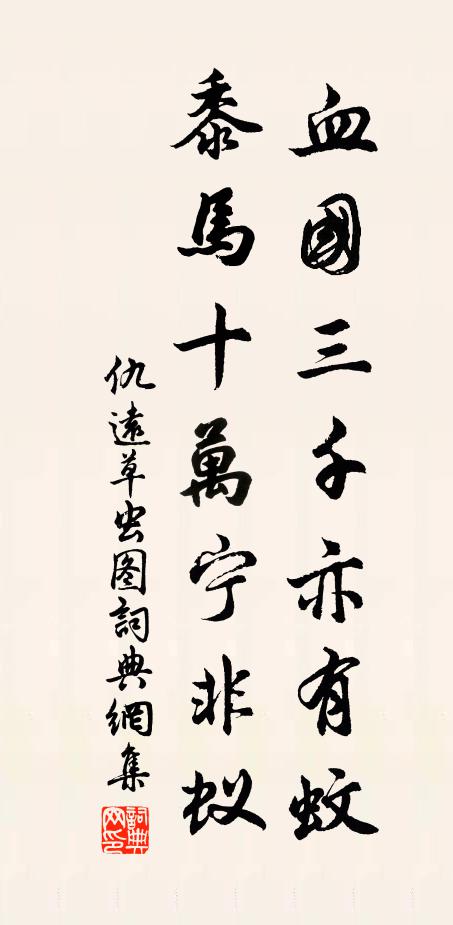 血國三千亦有蚊
黍馬十萬宁非蚁
仇遠草虫图詞典網集
詞典
网印